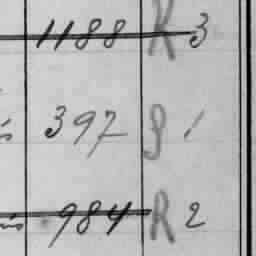 1188 R 3
397 P 1
984 R 2